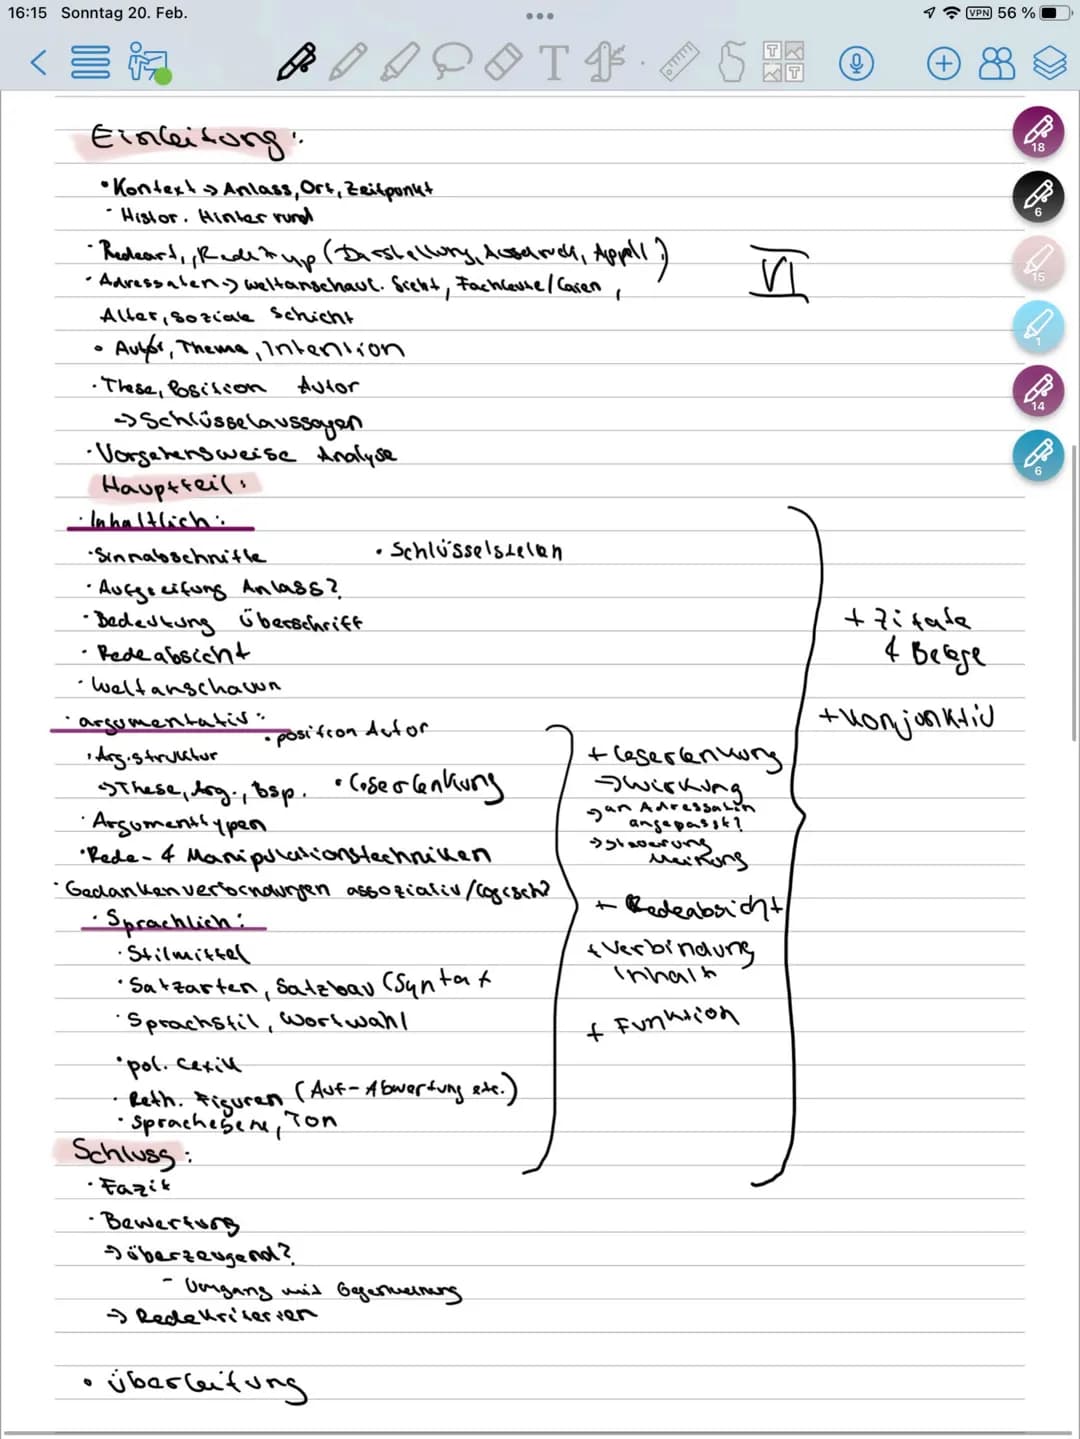 16:15 Sonntag 20. Feb.
VPN 56 %
18
6
15
1
14
6
Einleitung:
• Kontext → Anlass, Ort, Zeitpunkt
- Histor. Hinterrund
• Redeart, Redetyp (Darstellung, Ausdruck, Appell)
VI
• Adressaten → weltanschaul. Sicht, Fachleute/Laien,
Alter, soziale Schicht
• Autor, Thema, Intention
• These, Position Autor
→ Schlüsselaussagen
• Vorgehensweise Analyse
Hauptteil:
• Inhaltlich:
• Sinnabschnitte
• Schlüsselstelen
• Aufgreifung Anlass?
• Bedeutung Überschrift
• Redeabsicht
• Weltanschauun
• argumentativ:
• position Autor
• Arg.struktur
→ These, Arg., bsp.
• Leserlenkung
• Argumenttypen
• Rede- & Manipulationstechniken
• Gedankenverbindungen assoziativ/logisch?
• Sprachlich:
• Stilmittel
• Satzarten, Satzbau (Syntax
• Sprachstil, Wortwahl
• pol. Lexik
• Reth. Figuren (Auf-Abwertung etc.)
• Sprachebene, Ton
+ Leserlenkung
→ Wirkung
→ an Adressaten
angepasst?
→ Steuerung
Meinung
+ Redeabsicht
+ Verbindung
Inhalt
+ Funktion
+ Zitate
& Belege
+ Konjunktiv
Schluss:
• Fazit
• Bewertung
→ überzeugend?
- Umgang mit Gegenmeinung
→ Redekriterien
• Überleitung